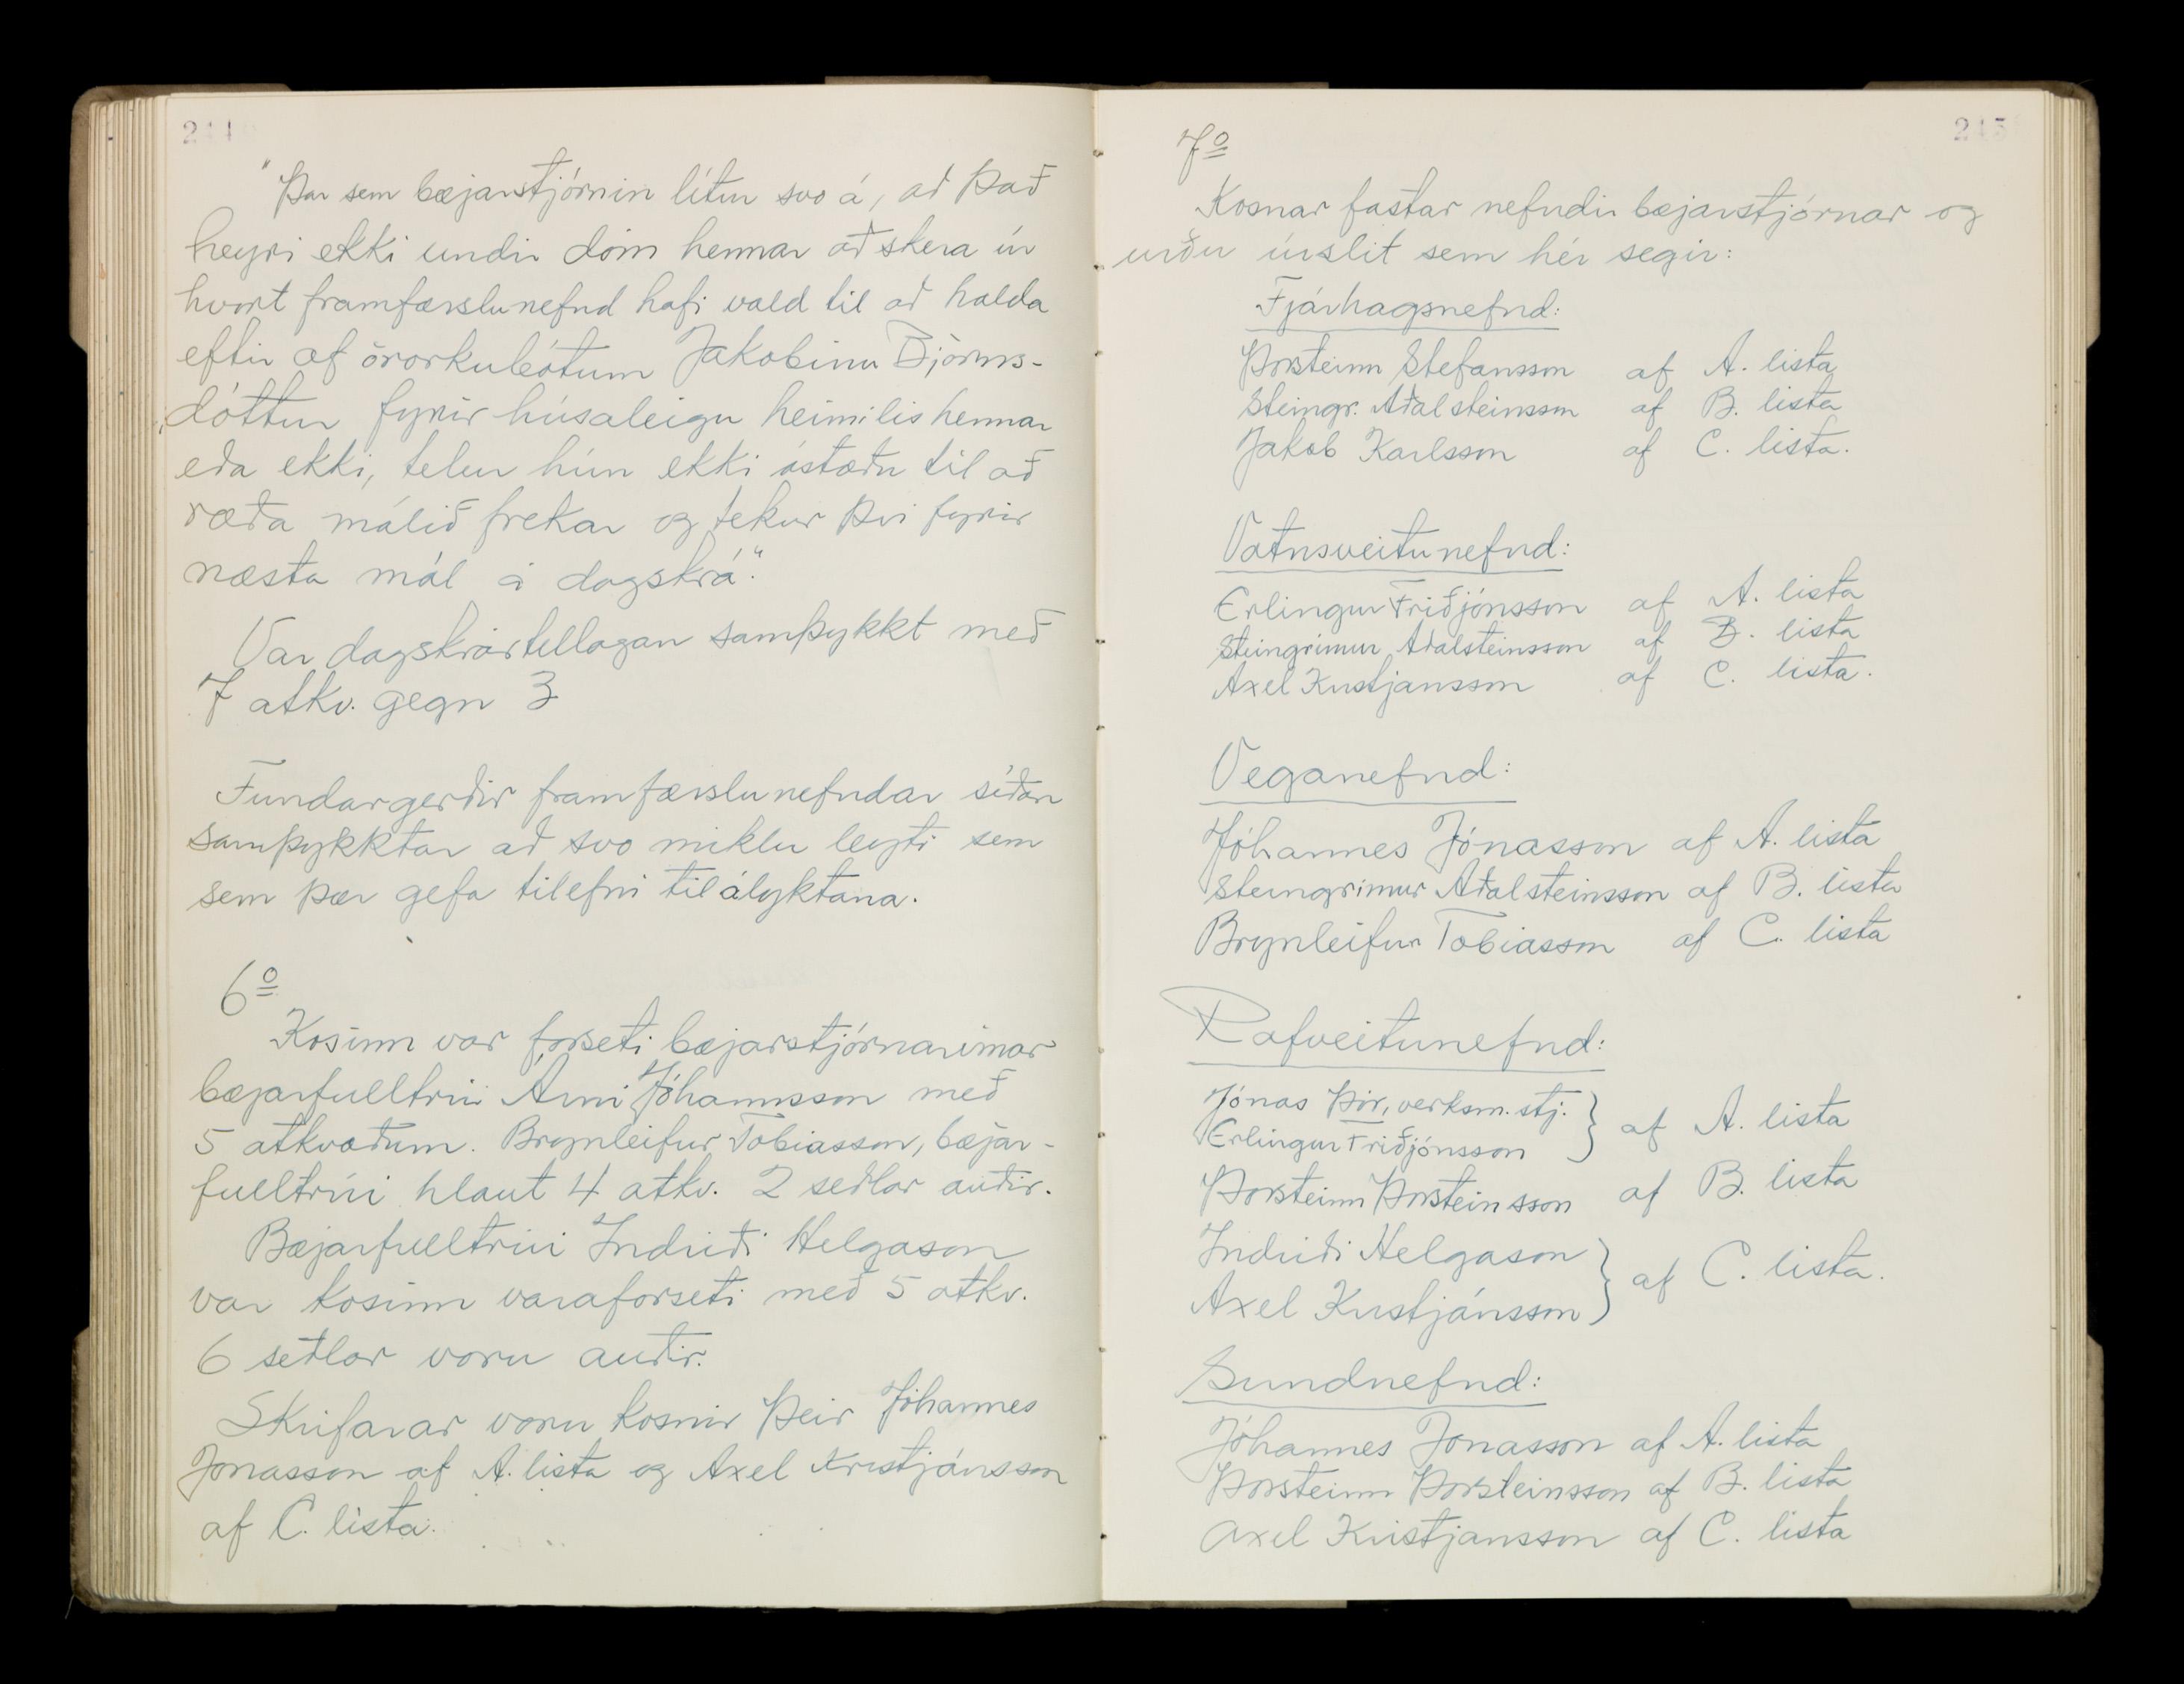 244
"Þar sem bæjarstjórnin lítur svo á, að það
heyri ekki undir dóm hennar að skera úr
hvort framfærslunefnd hafi vald til að halda
eftir af örorkubótum Jakobínu Björns-
dóttur fyrir húsaleigu heimilis hennar
eða ekki, telur hún ekki ástæðu til að
ræða málið frekar og tekur því fyrir
næsta mál á dagskrá."
Var dagskrártillagan samþykkt með
7 atkv. gegn 3
Fundargerðir framfærslunefndar síðan
samþykktar að svo miklu leyti sem
sem þær gefa tilefni til ályktana.
6º
Kosinn var forseti bæjarstjórnarinnar
bæjarfulltrúi Árni Jóhannsson með
5 atkvæðum. Brynleifur Tobiasson, bæjar-
fulltrúi hlaut 4 atkv. 2 seðlar auðir.
Bæjarfulltrúi Indriði Helgason
var kosinn varaforseti með 5 atkv.
6 seðlar voru auðir.
Skrifarar voru kosnir þeir Jóhannes
Jónasson af A. lista og Axel Kristjánsson
af C. lista.
245
7º
Kosnar fastar nefndir bæjarstjórnar og
urðu úrslit sem hér segir:
Fjárhagsnefnd:
Þorsteinn Stefansson af A. lista
Steingr. Aðalsteinsson af B. lista
Jakob Karlsson af C. lista.
Vatnsveitunefnd:
Erlingur Friðjónsson af A. lista
Steingrimur Aðalsteinsson af B. lista
Axel Kristjansson af C. lista.
Veganefnd:
Jóhannes Jónasson af A. lista
Steingrimur Aðalsteinsson af B. lista
Brynleifur Tobiasson af C. lista
Rafveitunefnd:
Jónas Þór, verksm.stj.
Erlingur Friðjónsson } af A. lista
Þorsteinn Þorsteinsson af B. lista
Indriði Helgason
Axel Kristjánsson } af C. lista.
Sundnefnd:
Jóhannes Jónasson af A. lista
Þorsteinn Þorsteinsson af B. lista
Axel Kristjansson af C. lista